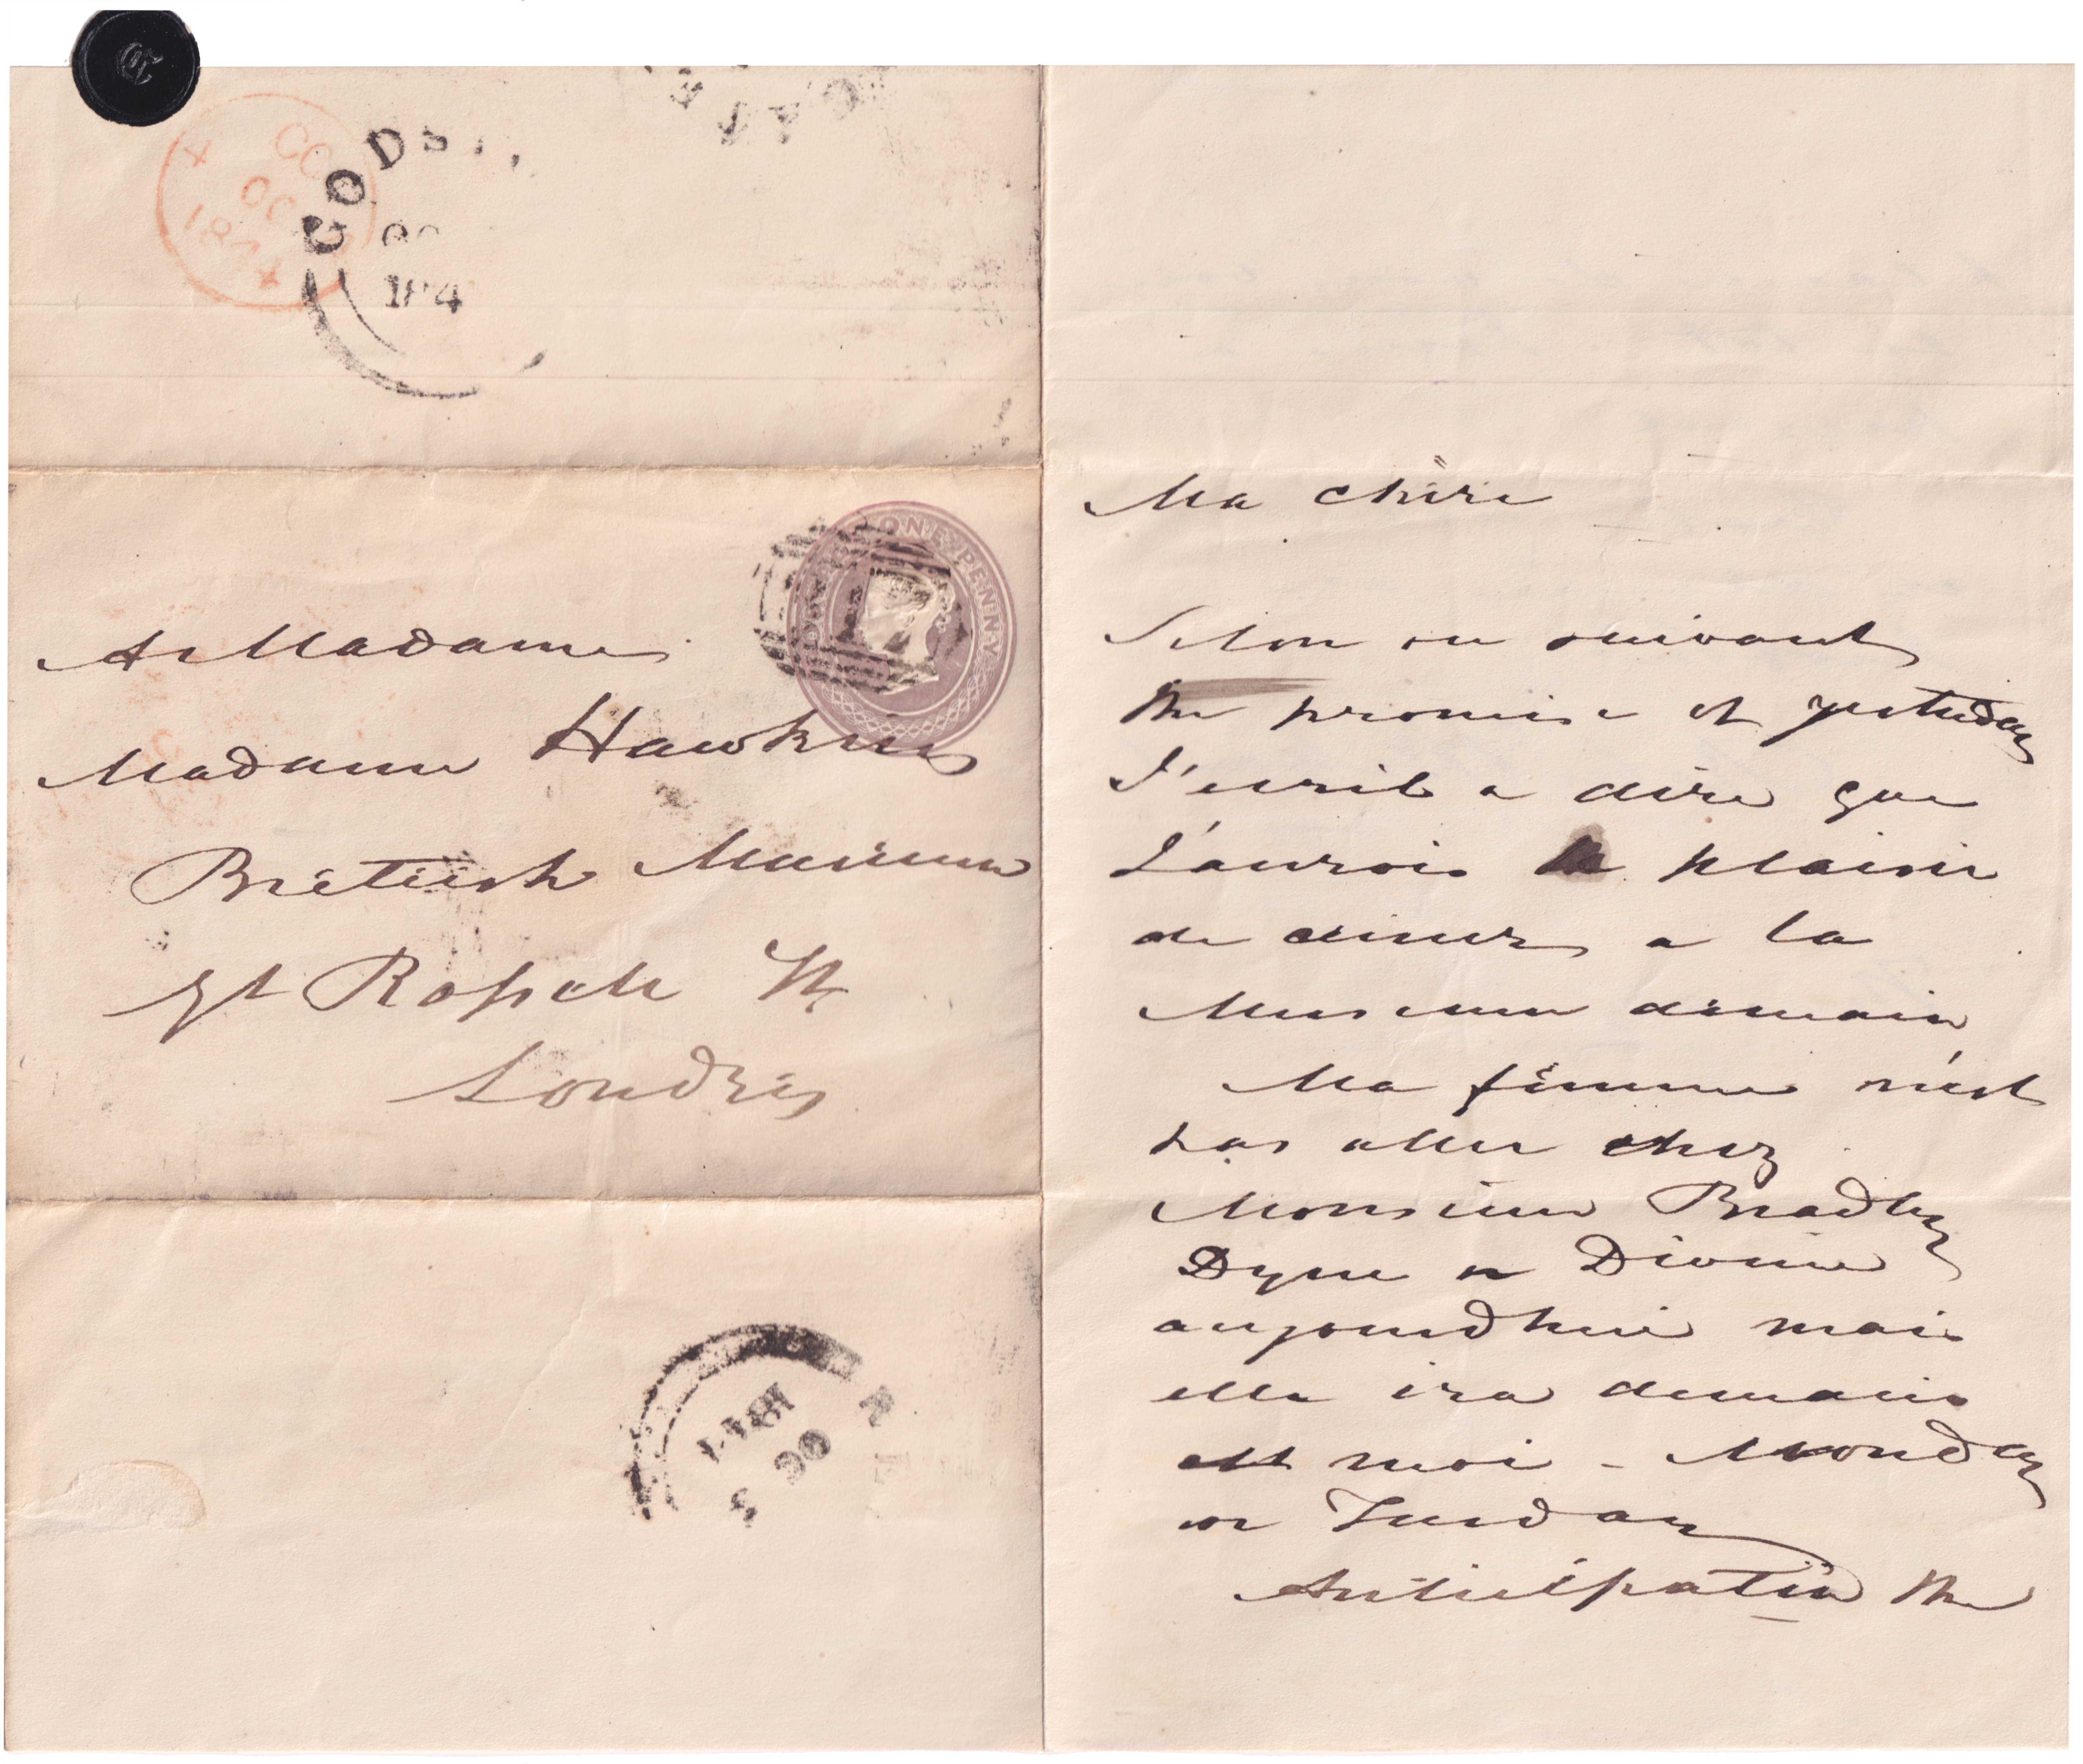 GODS
184
ONE PENNY
A Madame
Madame Hawkins
British Museum
Gt Rossele St
Londres
Ma chère
Selon ou suivant
the promise of yesterday
J'ecris a dire que
J'aurois le plaisir
de diner a la
Museum demain
Ma femme n'est
pas aller chez
Monsieur Bradley
Dyne n Divine
aujourdhui mais
elle ira demain
et moi - Monday
or Tuesday
Anticipatin the